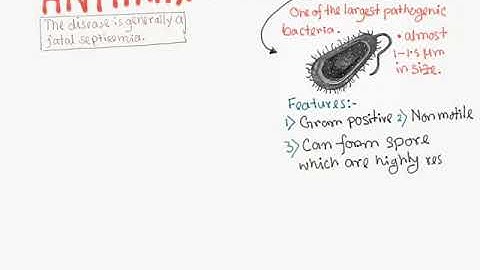 The disease is generally a
fatal septicemia.
One of the largest pathogenic
bacteria.
• almost
1-1.5 μm
in size.
Features:-
1) Gram positive 2) Nonmotile
3) Can form spore
which are highly res